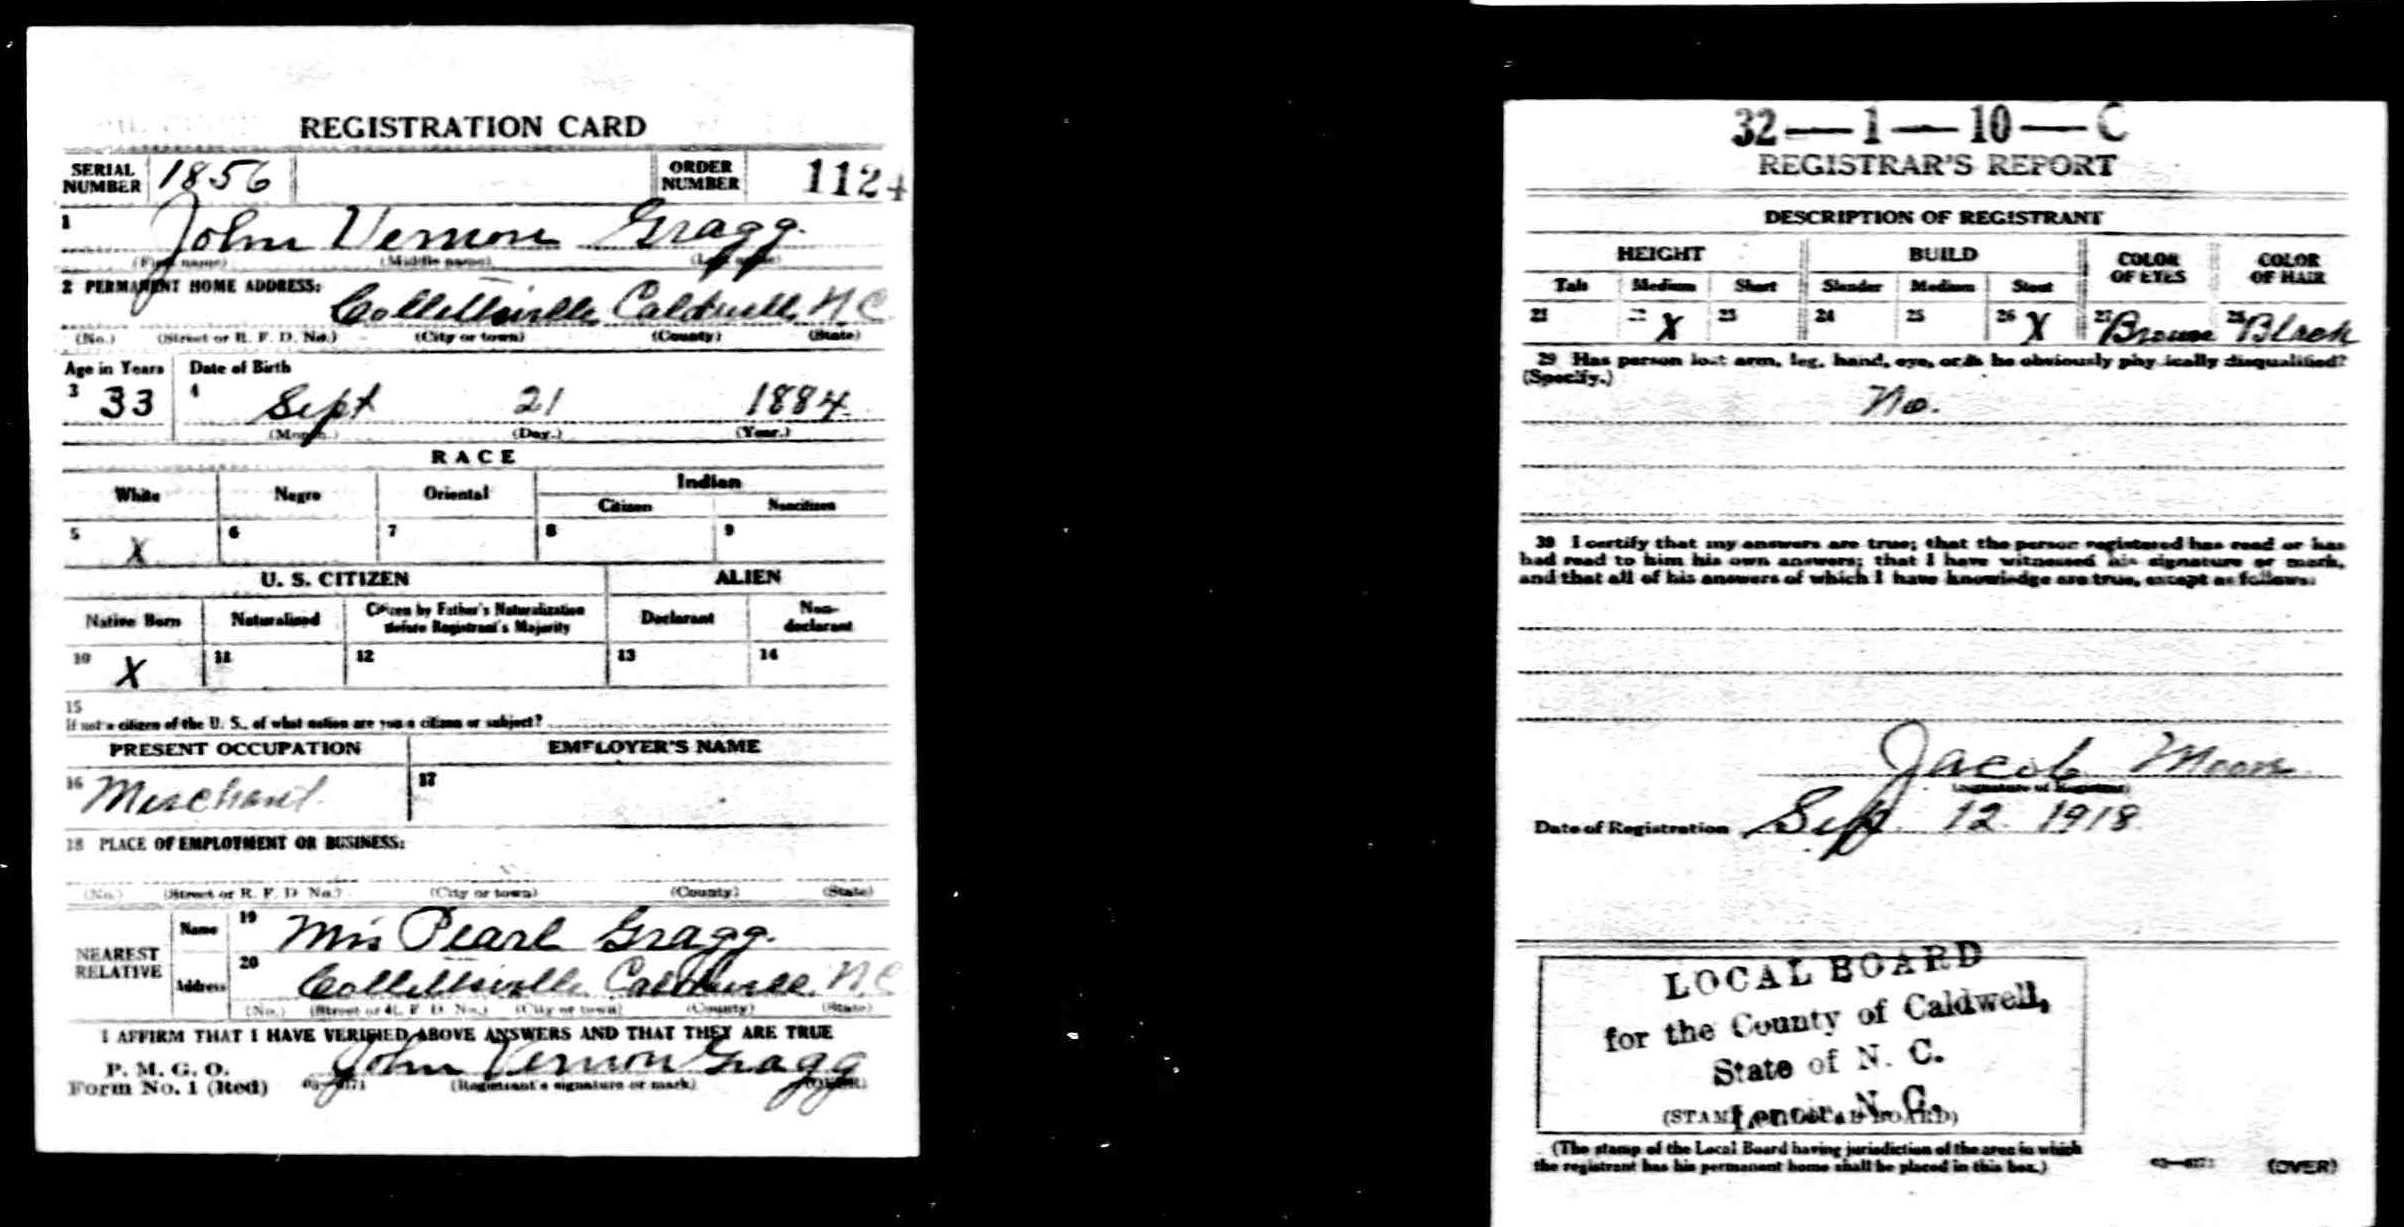 REGISTRATION CARD
SERIAL NUMBER 1856 ORDER NUMBER 1124
1 John Vernon Gragg.
(First name) (Middle name) (Last name)
2 PERMANENT HOME ADDRESS:
Collettsville Caldwell N C
(No.) (Street or R. F. D. No.) (City or town) (County) (State)
Age in Years Date of Birth
3 33 4 Sept 21 1884.
(Month.) (Day.) (Year.)
RACE
White Negro Oriental Indian
Citizen Noncitizen
5 X 6 7 8 9
U. S. CITIZEN ALIEN
Native Born Naturalized Citizen by Father's Naturalization Before Registrant's Majority Declarant Non-declarant
10 X 11 12 13 14
15
If not a citizen of the U. S., of what nation are you a citizen or subject?
PRESENT OCCUPATION EMPLOYER'S NAME
16 Merchant 17
18 PLACE OF EMPLOYMENT OR BUSINESS:
(No.) (Street or R. F. D. No.) (City or town) (County) (State)
NEAREST RELATIVE
Name 19 Mrs Pearl Gragg.
Address 20 Collettsville Caldwell. N.C
(No.) (Street or R. F. D. No.) (City or town) (County) (State)
I AFFIRM THAT I HAVE VERIFIED ABOVE ANSWERS AND THAT THEY ARE TRUE
P. M. G. O.
Form No. 1 (Red) John Vernon Gragg
(Registrant's signature or mark) (OVER)
32—1—10—C
REGISTRAR'S REPORT
DESCRIPTION OF REGISTRANT
HEIGHT BUILD COLOR OF EYES COLOR OF HAIR
Tall Medium Short Slender Medium Stout
21 22 X 23 24 25 26 X 27 Brown 28 Black
29 Has person lost arm, leg, hand, eye, or is he obviously physically disqualified?
(Specify.)
No.
30 I certify that my answers are true; that the person registered has read or has
had read to him his own answers; that I have witnessed his signature or mark,
and that all of his answers of which I have knowledge are true, except as follows:
Jacob Moore
(Signature of Registrar)
Date of Registration Sep. 12. 1918
LOCAL BOARD
for the County of Caldwell,
State of N. C.
Lenoir, N. C.
(STAMP OF LOCAL BOARD)
(The stamp of the Local Board having jurisdiction of the area in which
the registrant has his permanent home shall be placed in this box.)
(OVER)